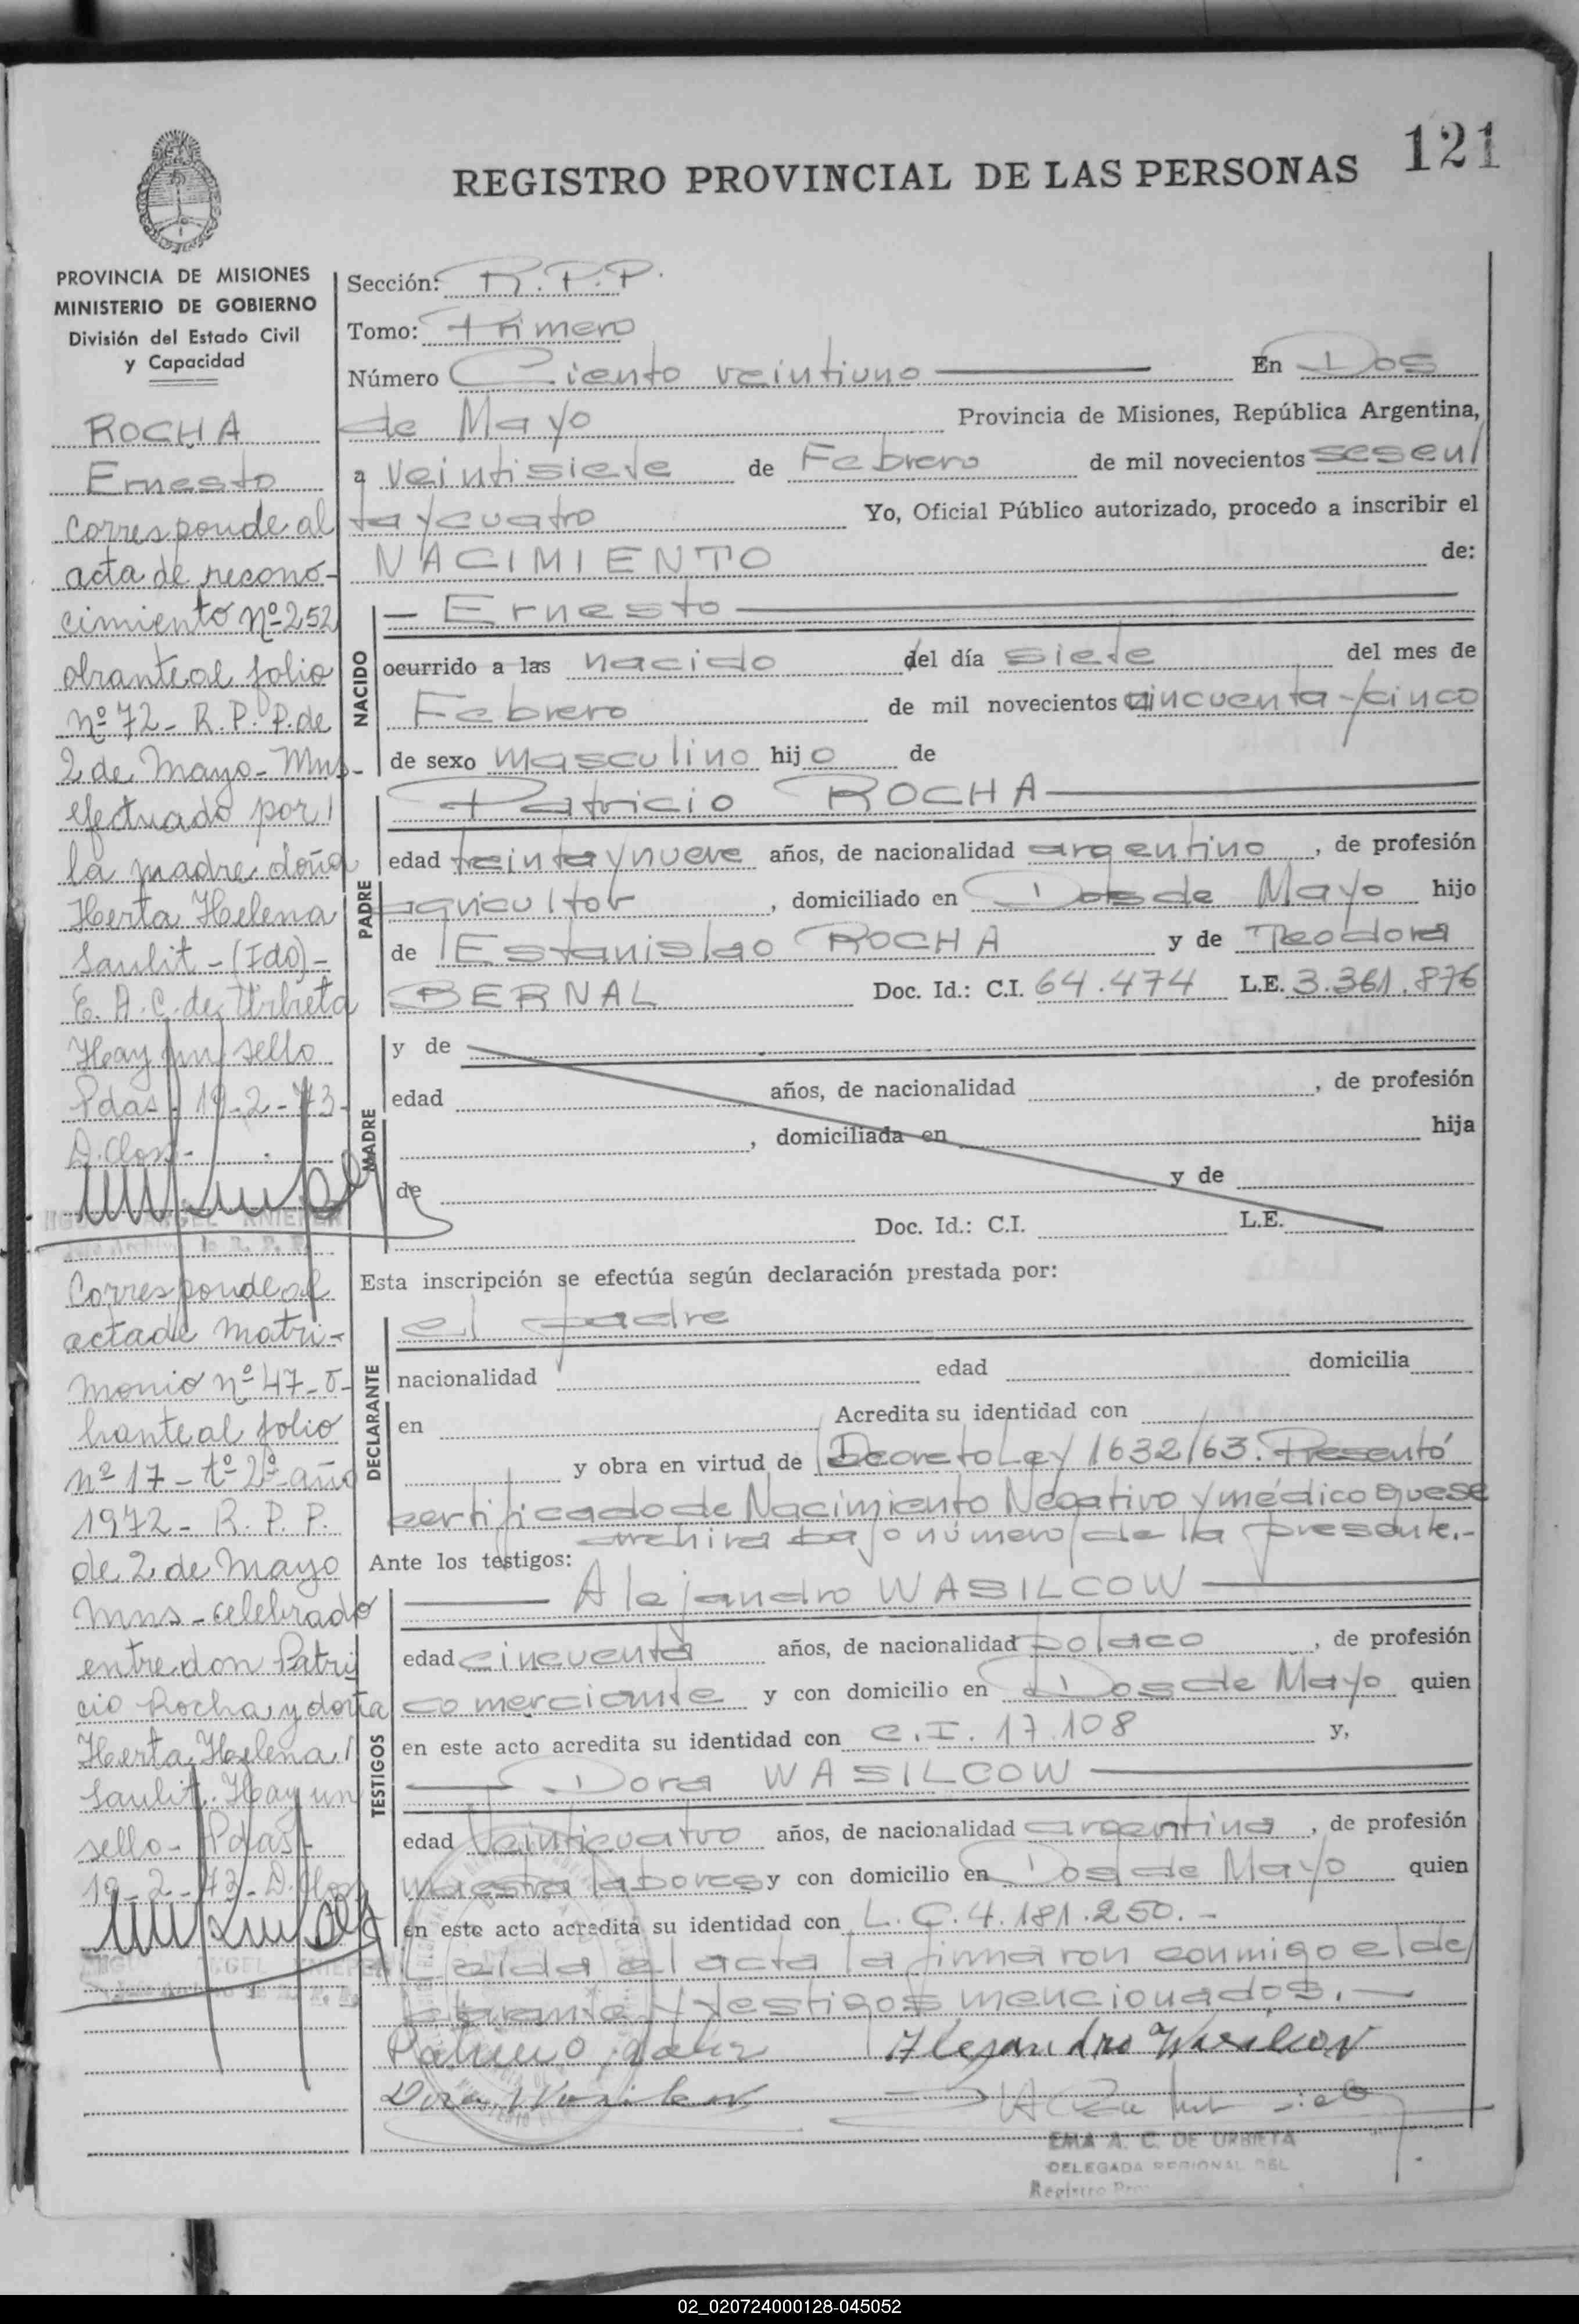 121
REGISTRO PROVINCIAL DE LAS PERSONAS
PROVINCIA DE MISIONES
MINISTERIO DE GOBIERNO
División del Estado Civil
y Capacidad
ROCHA
Ernesto
Corresponde al
acta de recono-
cimiento Nº 252
obrante al folio
nº 72 - R. P. P. de
2 de Mayo - Mns -
efectuado por /
la madre doña
Herta Helena
Saulit - (Fdo) -
E. A. C. de Urbieta
Hay un sello
Pdas - 19-2-73 -
D. Closs -
ANGEL KNIEPER
Jefe Archivo de R. P. P.
Corresponde al
acta de matri-
monio nº 47 - o-
brante al folio
nº 17 - tº 2º - año
1972 - R. P. P.
de 2 de Mayo
Mns - celebrado
entre don Patri
cio Rocha y doña
Herta Helena /
Saulit. Hay un
sello - Pdas -
19-2-73 - D. Closs
ANGEL KNIEPER
Jefe Archivo de R. P. P.
Sección: R. P. P.
Tomo: Primero
Número Ciento veintiuno En Dos
de Mayo Provincia de Misiones, República Argentina,
a veintisiete de Febrero de mil novecientos sesen/
ta y cuatro Yo, Oficial Público autorizado, procedo a inscribir el
NACIMIENTO de:
NACIDO
- Ernesto
ocurrido a las nacido del día siete del mes de
Febrero de mil novecientos cincuenta y cinco
de sexo masculino hijo de
PADRE
Patricio ROCHA
edad treinta y nueve años, de nacionalidad argentino, de profesión
agricultor, domiciliado en Dos de Mayo hijo
de Estanislao ROCHA y de Teodora
BERNAL Doc. Id.: C.I. 64.474 L.E. 3.361.876
MADRE
y de
edad años, de nacionalidad , de profesión
, domiciliada en hija
de y de
Doc. Id.: C.I. L.E.
Esta inscripción se efectúa según declaración prestada por:
DECLARANTE
el padre
nacionalidad edad domicilia
en Acredita su identidad con
y obra en virtud de Decreto Ley 1632/63. Presentó
certificado de Nacimiento Negativo y médico que se
archiva bajo número de la presente.-
Ante los testigos:
TESTIGOS
Alejandro WASILCOW
edad cincuenta años, de nacionalidad polaco, de profesión
comerciante y con domicilio en Dos de Mayo quien
en este acto acredita su identidad con C.I. 17.108 y,
Dora WASILCOW
edad veinticuatro años, de nacionalidad argentina, de profesión
maestra labores y con domicilio en Dos de Mayo quien
en este acto acredita su identidad con L.C. 4.181.250.-
Leida el acta la firmaron conmigo el de/
clarante y testigos mencionados.-
Alejandro Wasilcow
Dora Wasilcow
EMA A. C. DE URBIETA
DELEGADA REGIONAL DEL
Registro
02_020724000128-045052